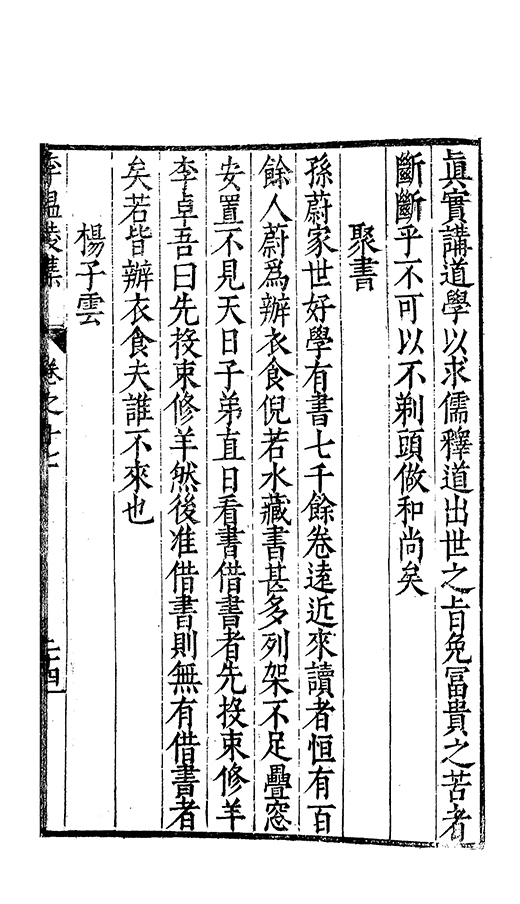 眞實講道學以求儒釋道出世之旨免冨貴之苦者
斷斷乎不可以不剃頭做和尚矣
聚書
孫蔚家世好學有書七千餘卷遠近來讀者恒有百
餘人蔚爲辦衣食倪若水藏書甚多列架不足疊窓
安置不見天日子弟直日看書借書者先投束修羊
李卓吾曰先投束修羊然後准借書則無有借書者
矣若皆辦衣食夫誰不來也
楊子雲
李温陵集
卷之十七